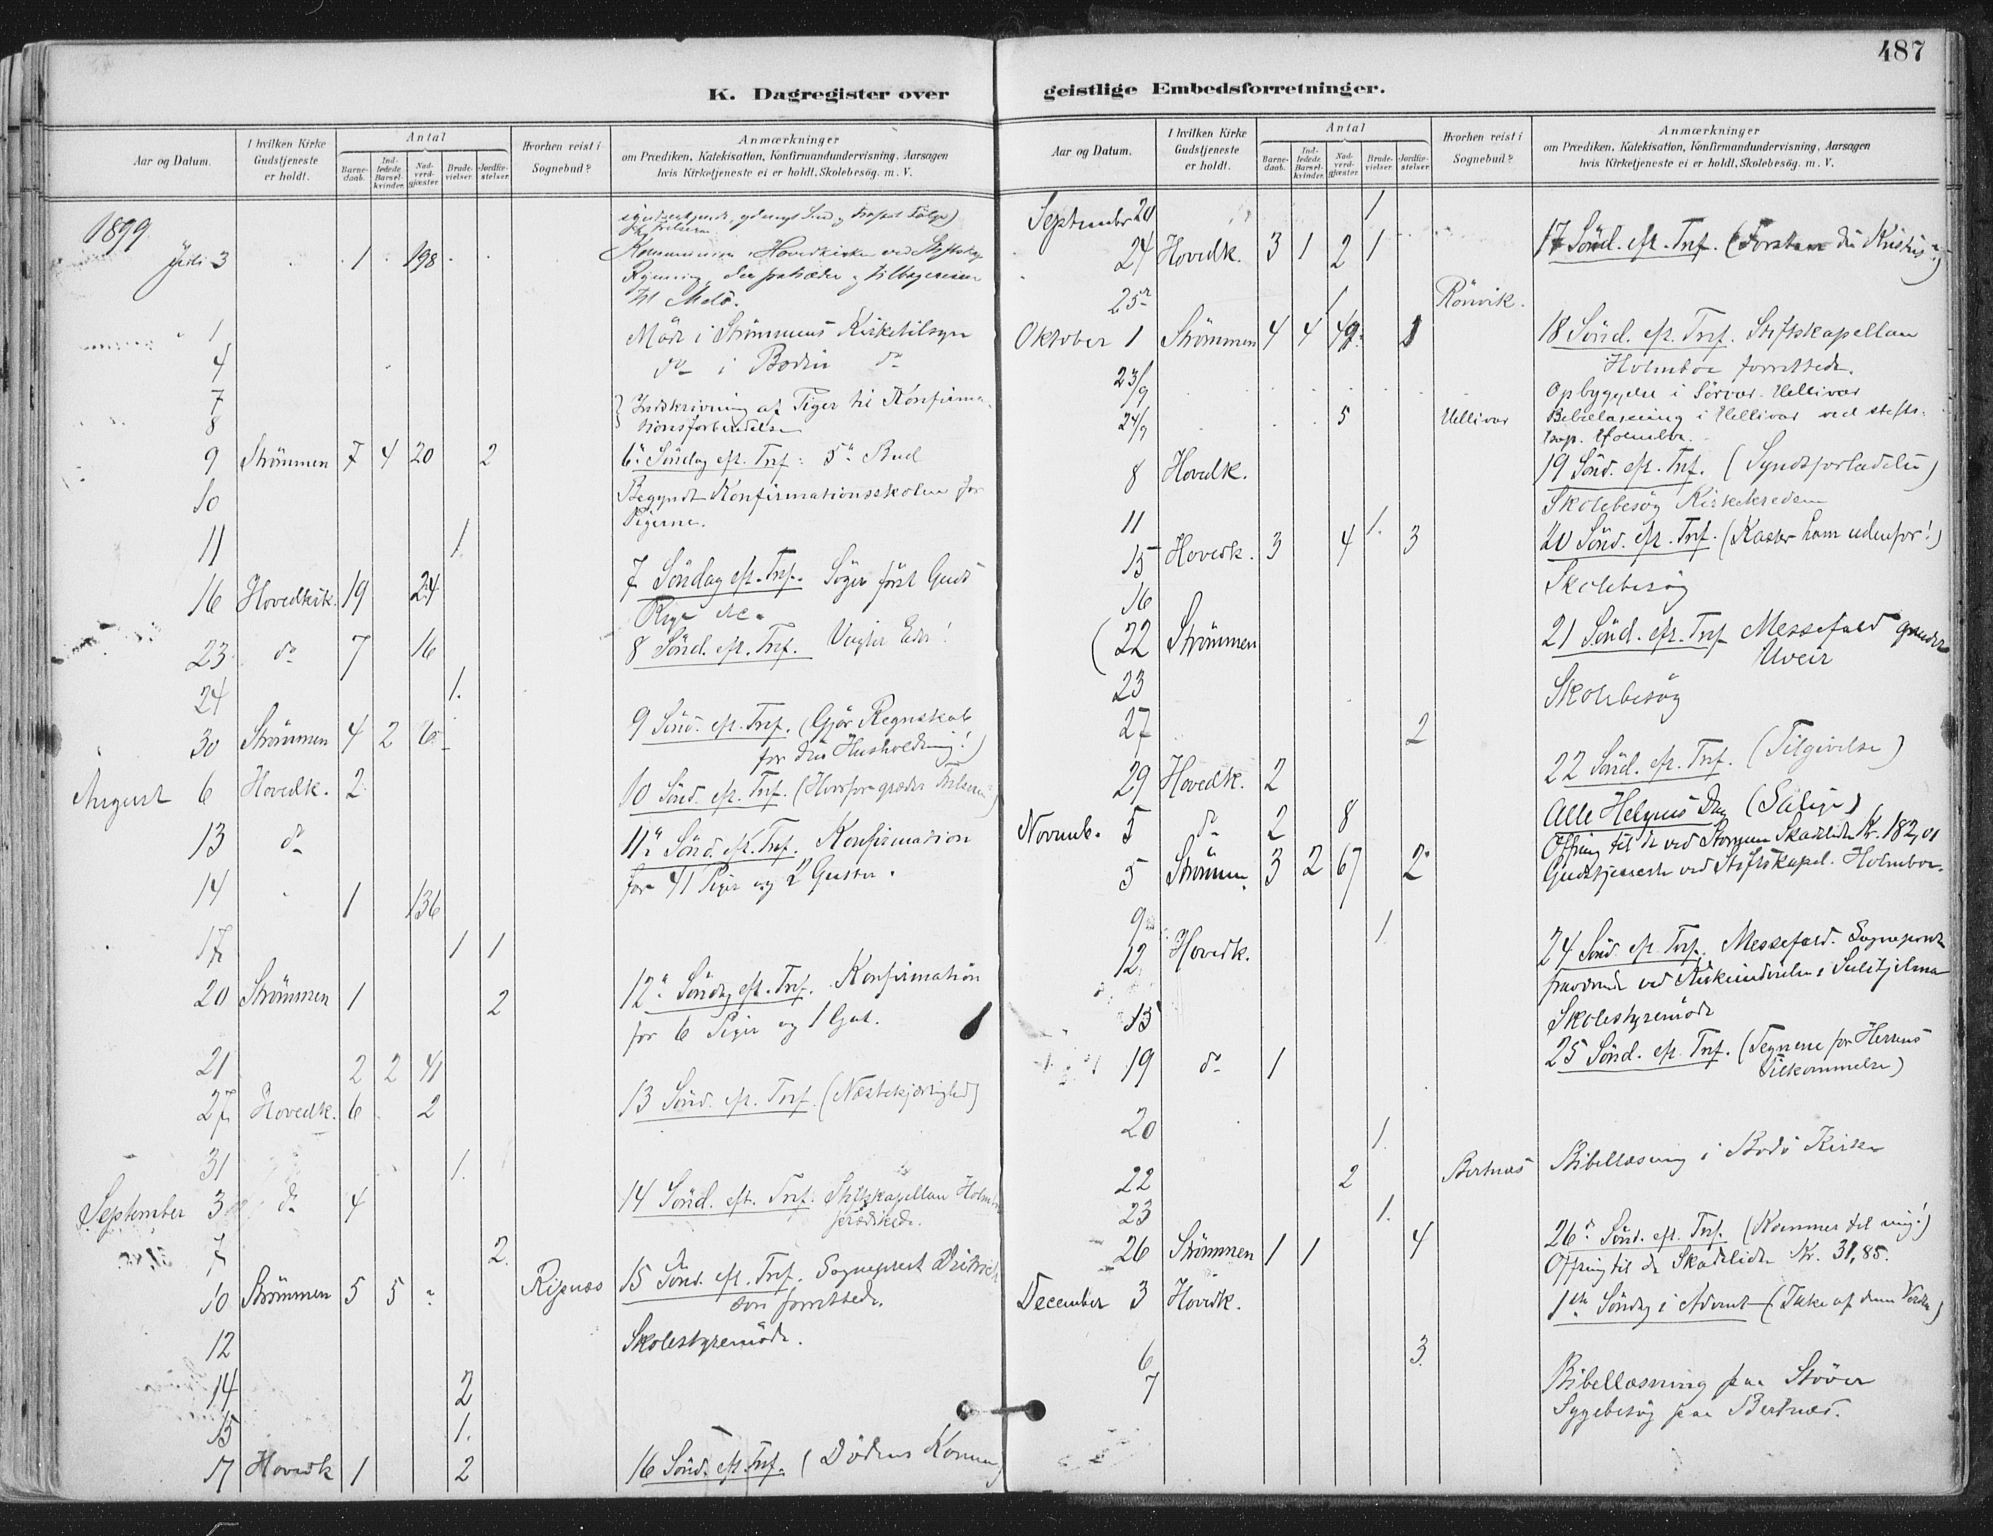 487
K. Dagregister over
Aar og Datum.
I hvilken Kirke Gudstjeneste er holdt.
Antal
Barnedaab.
Indledede Barselkvinder.
Nadverdgjæster.
Brudevielser.
Jordfæstelser.
Hvorhen reist i Sognebud?
Anmærkninger
om Prædiken, Katekisation, Konfirmandundervisning, Aarsagen
hvis Kirketjeneste ei er holdt, Skolebesøg. m. V.
1899
3 1 198 Kommunion i Hovedkirken ved
til Melö.
1 Möde i Strömmens Kirketilsyn
4 do i Bodin do
7
8 Indskrivning af Piger til Konfirma-
tionsforberedelse
9 Strömmen 7 4 20 2 6te Söndag eft. Tref: 5te Bud
10 Begyndt Konfirmationsskolen for
Pigerne.
11 1.
16 Hovedkirk. 19 24 7 Söndag eft. Tref. Söger först Guds
Rige etc.
23 do 7 16 8 Sönd. eft. Tref. Vogter Eder!
24 1.
30 Strömmen 4 2 6 9 Sönd. eft. Tref. (Gjör Regnskab
for din Husholdning!)
August 6 Hovedk. 2 10 Sönd. eft. Tref. (Hvorfor græder
13 do 11te Sönd. eft. Tref. Konfirmation
for 41 Piger og 2 Gutter.
14 1 136
17 1 1
20 Strömmen 1 2 12te Söndag eft. Tref. Konfirmation
for 6 Piger og 1 Gut.
21 2 2 41
27 Hovedk. 6 2 13 Sönd. eft. Tref. (Næstekjærlighed)
31 1.
September 3 do 4 14 Sönd. eft. Tref. Stiftskapellan
prædikede.
7 2
10 Strömmen 5 5 Ripnæs 15 Sönd. eft. Tref. Sogneprest
forrettede.
12 Skolestyremöde.
14 2
15 1.
17 Hovedk 1 2 16 Sönd. eft. Tref. (Dödens
geistlige Embedsforretninger.
Aar og Datum.
I hvilken Kirke Gudstjeneste er holdt.
Antal
Barnedaab.
Indledede Barselkvinder.
Nadverdgjæster.
Brudevielser.
Jordfæstelser.
Hvorhen reist i Sognebud?
Anmærkninger
om Prædiken, Katekisation, Konfirmandundervisning, Aarsagen
hvis Kirketjeneste ei er holdt, Skolebesøg. m. V.
September 20 1
24 Hovedk. 3 1 2 1 17 Sönd. eft. Tref.
25de 1 Rönvik.
Oktober 1 Strömmen 4 4 18 Sönd. eft. Tref. Stiftskapellan
Holmboe forrettede.
23/9 Opbyggelse i
24/9 5 Bibellæsning i
Holmboe.
8 Hovedk. 19 Sönd. eft. Tref. (Syndsforladelse)
Skolebesög Kirkekredsen
11 1.
15 Hovedk. 3 4 3 20 Sönd. eft. Tref. (Kaster ham udenfor!)
16 Skolebesög
(22 Strömmen 21 Sönd. eft. Tref Messefald grundet
Uveir
23 Skolebesög
27 2
29 Hovedk. 2 22 Sönd. eft. Tref. (Tilgivelse)
Novemb. 5 do 2 8 Alle Helgens Dag (Salige)
Offring til de ved Stormen Skadelidte Kr. 182,01
5 Strömm. 3 2 67 2 Gudstjeneste ved Stiftskapel. Holmboe.
9 1.
12 Hovedk. 24 Sönd. eft. Tref. Messefald. Sognepresten
fraværende ved Kirkeindvielse i Sulitjelma
13 Skolestyremöde
19 do 1 25 Sönd. eft. Tref. (Tegnene for Herrens
Tilkommelse)
20 1.
22 2 Bertnæs Bibellæsning i Bodö Kirke
23 1.
26 Strömmen 1 1 4 26de Sönd. eft. Tref. (Kommer til mig!)
Offring til de Skadelidte Kr. 31,85.
December 3 Hovedk. 1ste Söndag i Advent (Ikke af denne Verden)
6 3
7 Bibellæsning paa Stöver
Sygebesög paa Bertnæs.